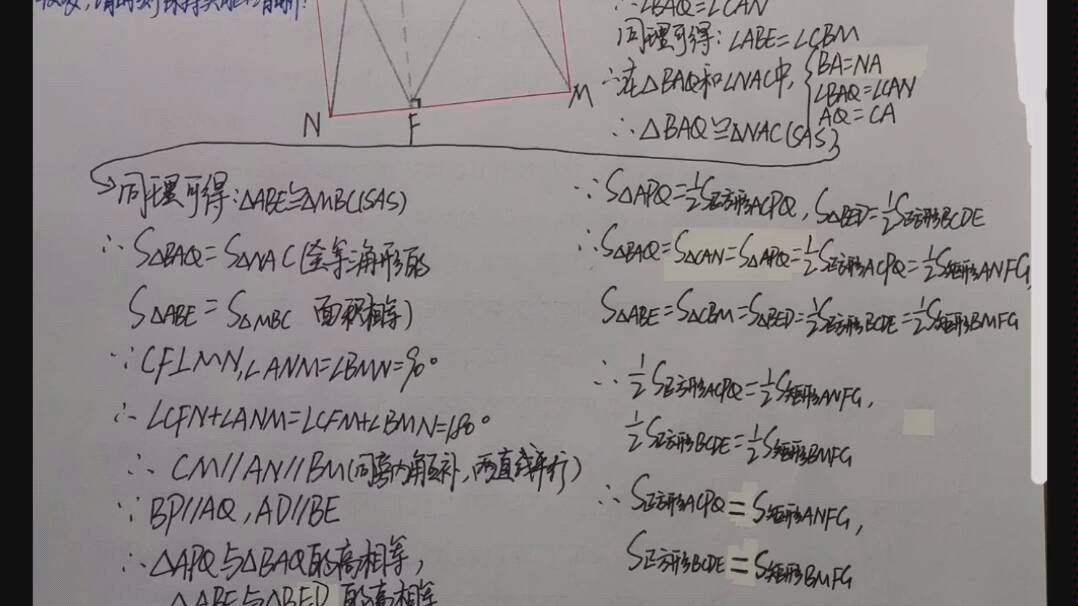 ∴∠BAQ=∠CAN
同理可得:∠ABE=∠CBM
∵在△BAQ和∠NAC中,
BA=NA
∠BAQ=∠CAN
AQ=CA
∴△BAQ≌△NAC(SAS)
N
F
M
同理可得:△ABE≌△MBC(SAS)
∴S△BAQ=S△NAC(全等三角形的
S△ABE=S△MBC 面积相等)
∵CF⊥MN,∠ANM=∠BMN=90°
∴∠CFN+∠ANM=∠CFM+∠BMN=180°
∴CM//AN//BM(同旁内角互补,两直线平行)
∵BP//AQ,AD//BE
∴△APQ与△BAQ的高相等,
△ABE与△BED的高相等
∵S△APQ=½S正方形ACPQ,S△BED=½S正方形BCDE
∴S△BAQ=S△CAN=S△APQ=½S正方形ACPQ=½S矩形ANFG,
S△ABE=S△CBM=S△BED=½S正方形BCDE=½S矩形BMFG
∴½S正方形ACPQ=½S矩形ANFG,
½S正方形BCDE=½S矩形BMFG
∴S正方形ACPQ=S矩形ANFG,
S正方形BCDE=S矩形BMFG